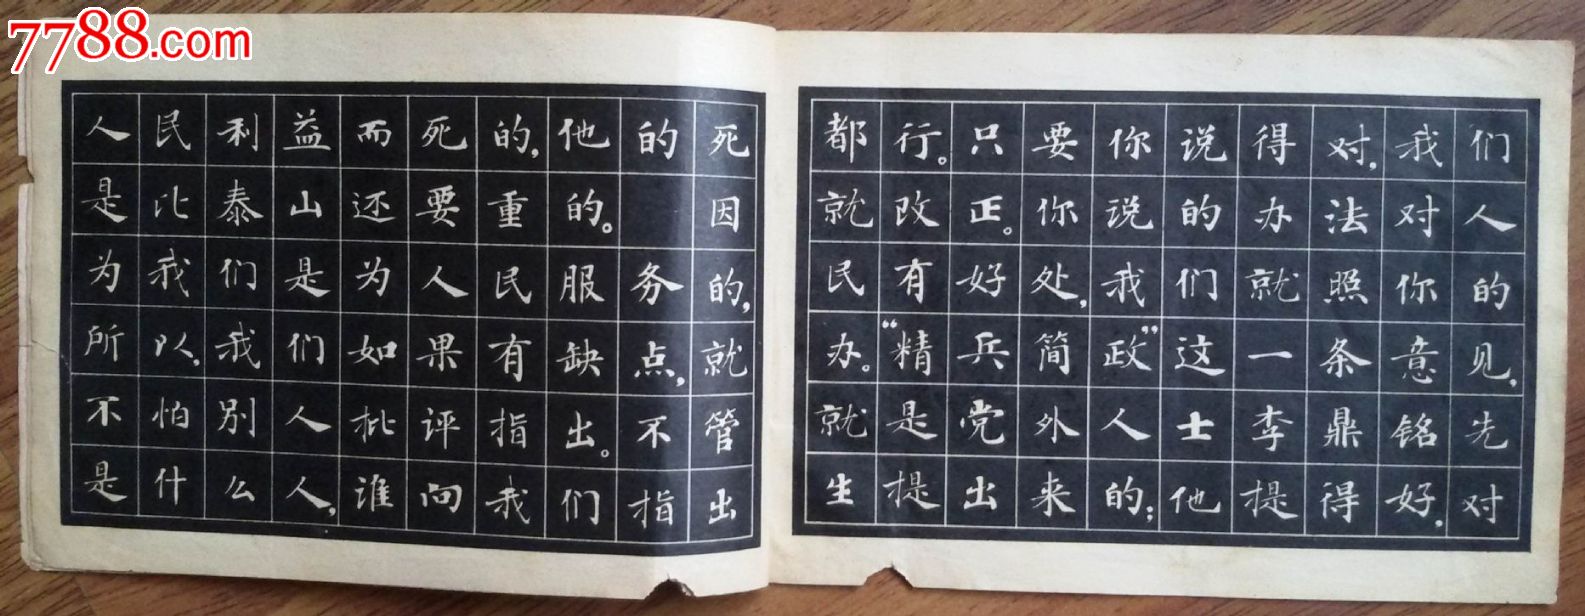 7788.com
人民利益而死的,他的死
是比泰山还要重的。 因
为我们是为人民服务的,
所以,我们如果有缺点,就
不怕别人批评指出。不管
是什么人,谁向我们指出
都行。只要你说得对,我们
就改正。你说的办法对人
民有好处,我们就照你的
办。“精兵简政”这一条意见,
就是党外人士李鼎铭先
生提出来的;他提得好,对